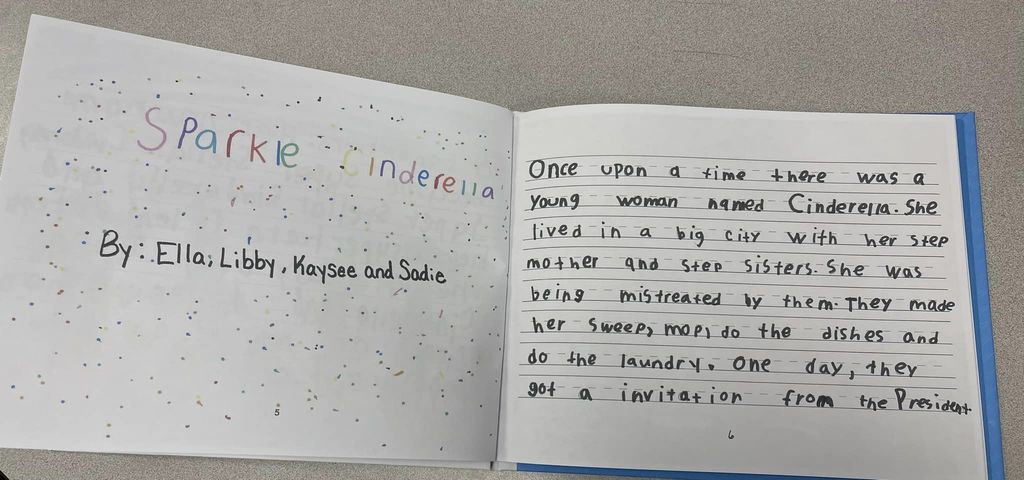 Sparkle Cinderella
By: Ella, Libby, Kaysee and Sadie
5
Once upon a time there was a
young woman named Cinderella. She
lived in a big city with her step
mother and step sisters. She was
being mistreated by them. They made
her sweep, mop, do the dishes and
do the laundry. One day, they
got a invitation from the President
6